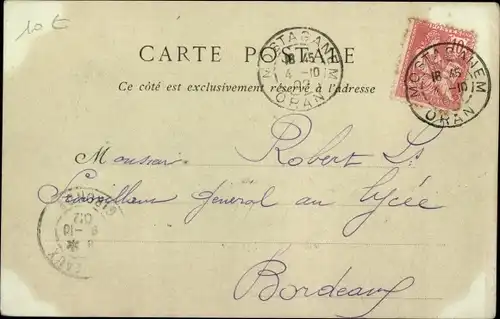 10 €
CARTE POSTALE
Ce côté est exclusivement réservé à l'adresse
MOSTAGANEM
18 45
4 -10
02
ORAN
10
MOSTAGANEM
18 45
-10
ORAN
Monsieur Robert
Surveillant général au lycée
Bordeaux